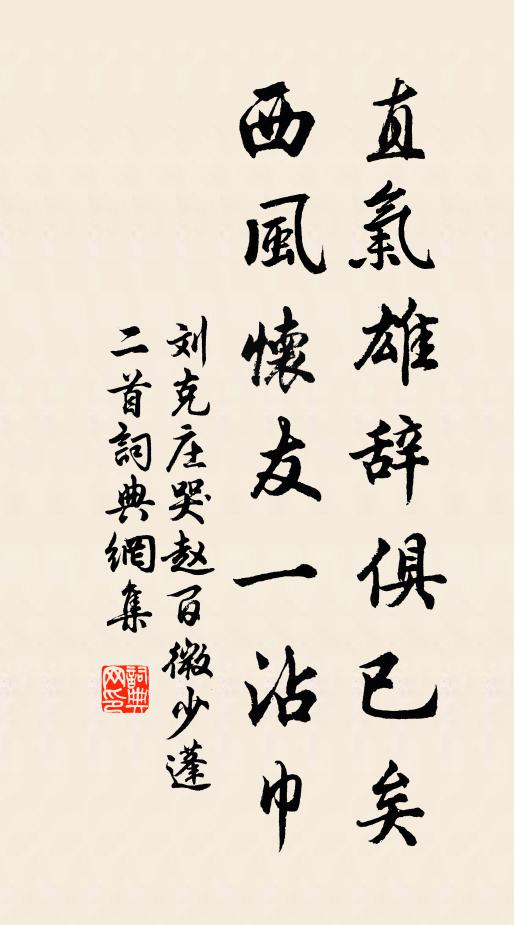 直氣雄辞俱已矣
西風懷友一沾巾
刘克庄哭赵百微少蓬
二首詞典網集
詞典网印